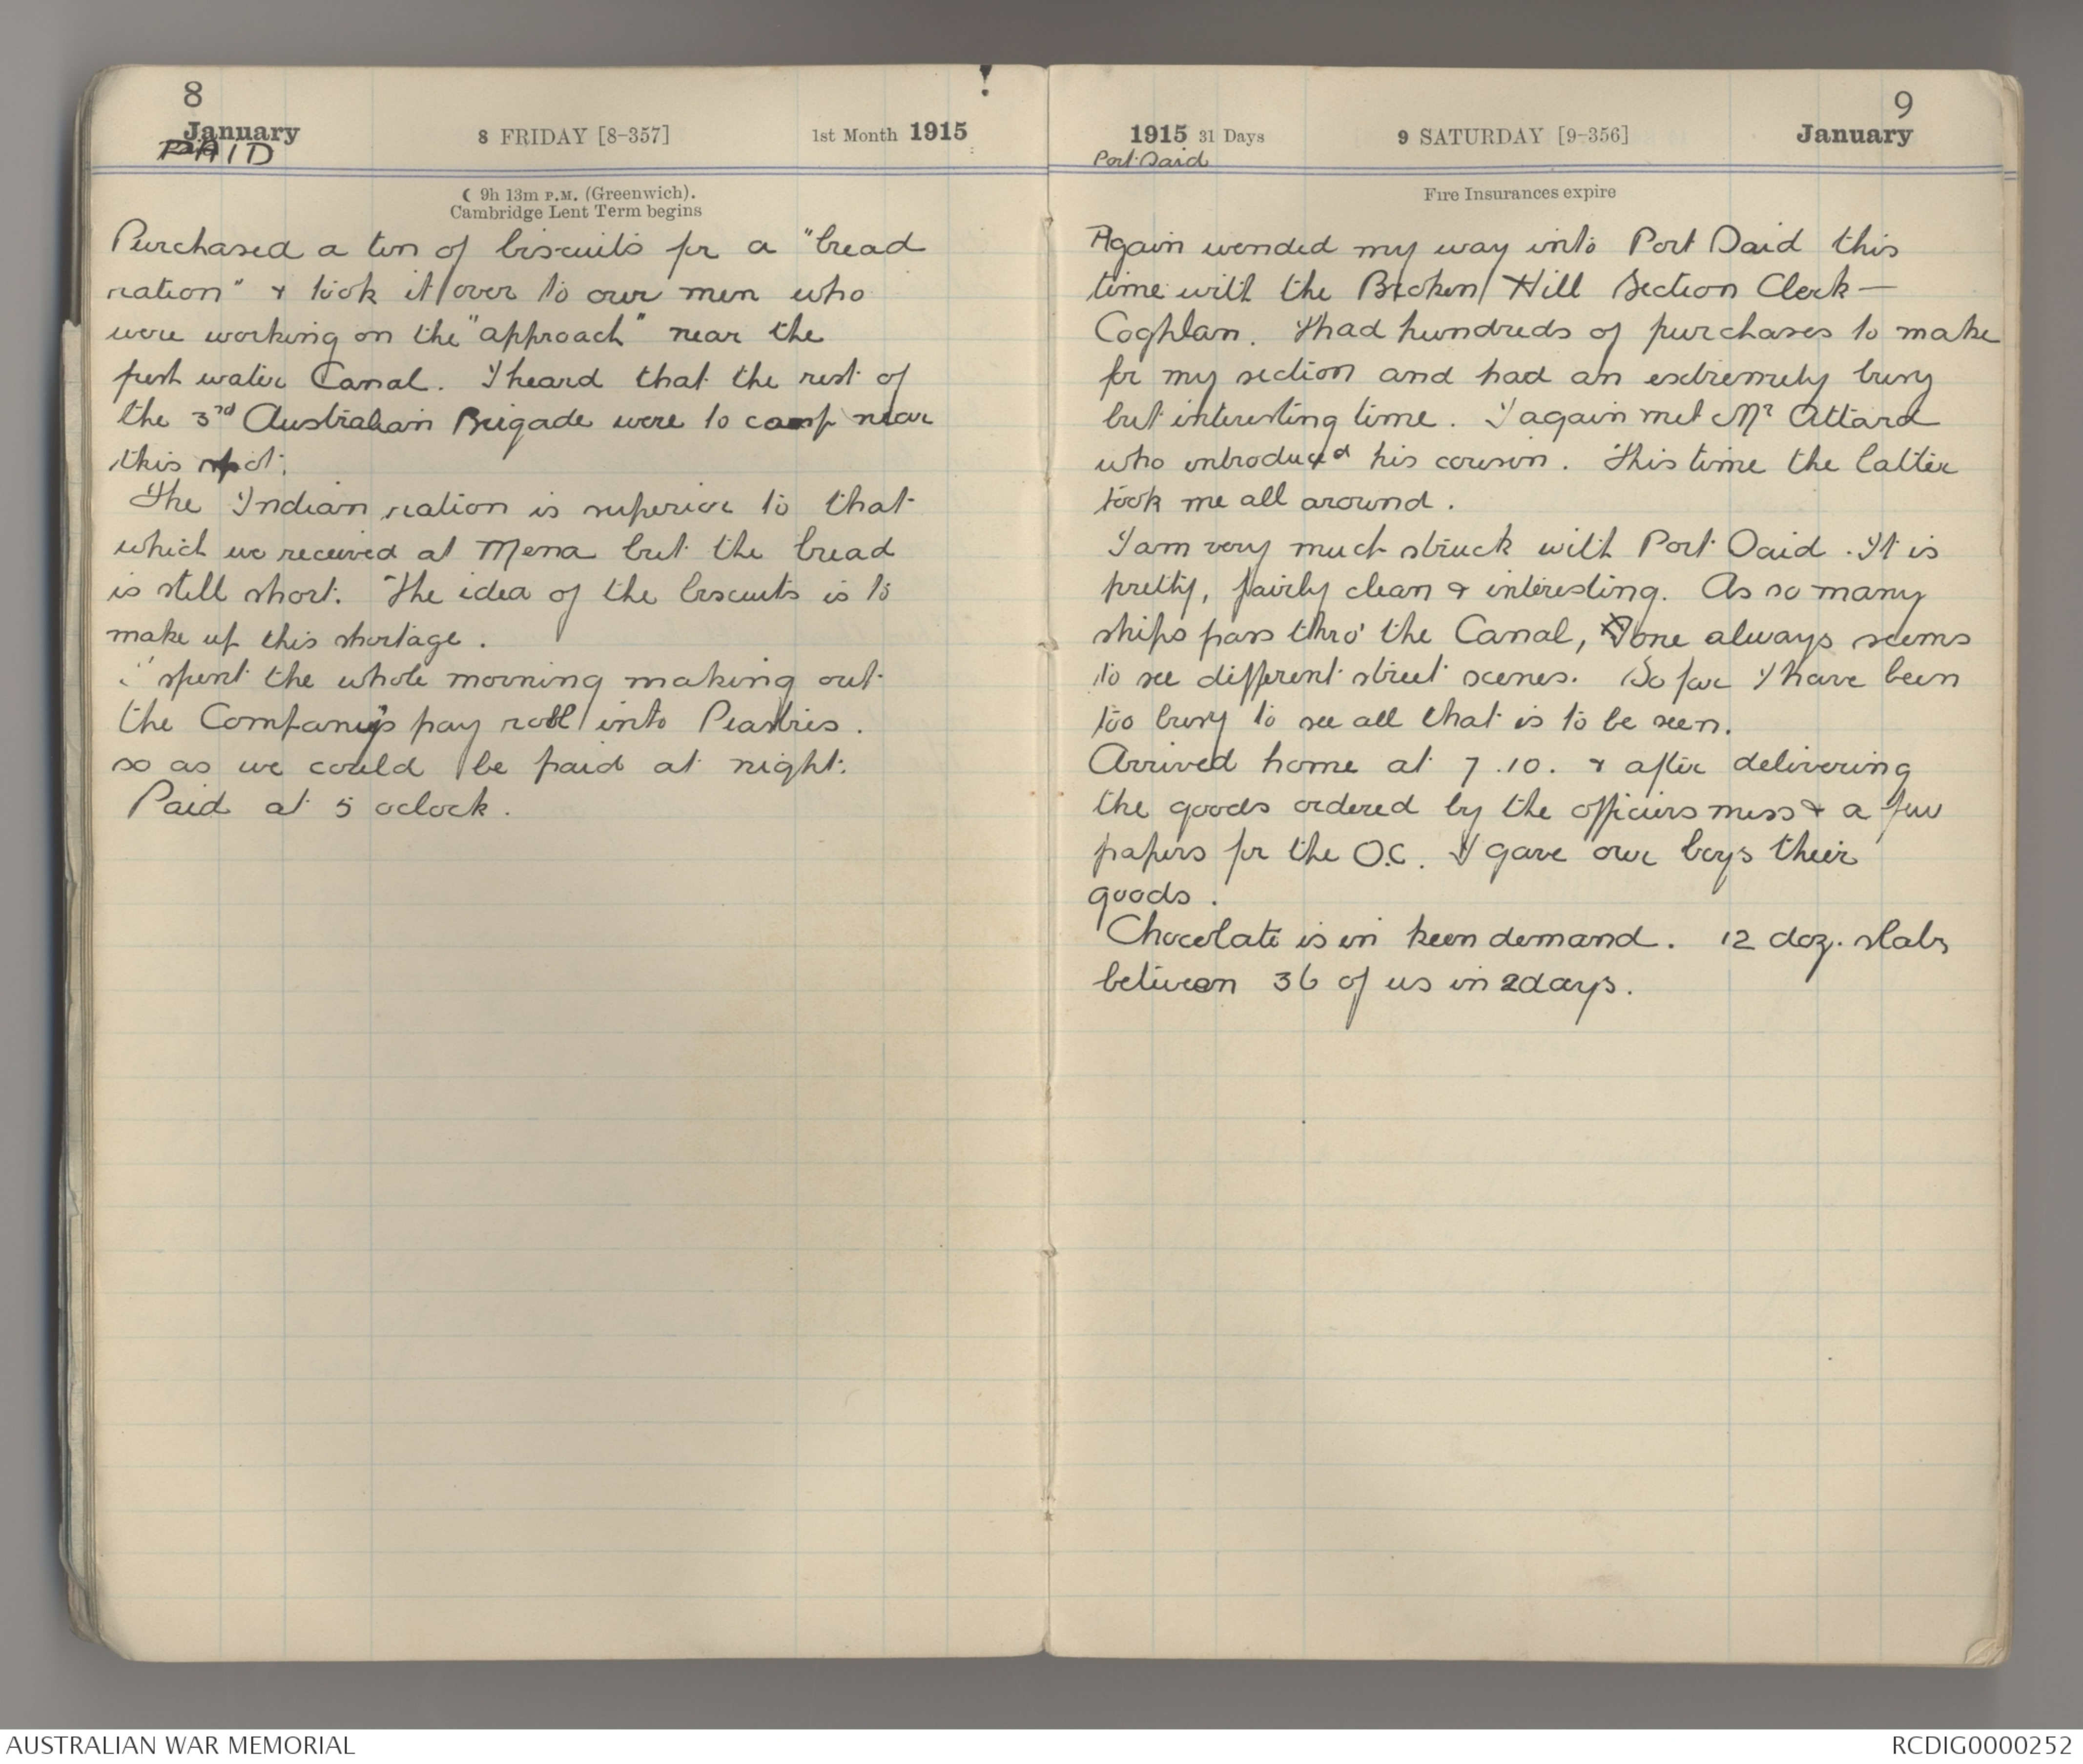 8
January
PAID
8 FRIDAY [8-357]
1st Month 1915
☾ 9h 13m P.M. (Greenwich).
Cambridge Lent Term begins
Purchased a tin of biscuits for a "bread
ration" & took it over to our men who
were working on the "approach" near the
fresh water Canal. I heard that the rest of
the 3rd Australian Brigade were to camp near
this spot.
The Indian ration is superior to that
which we received at Mena but the bread
is still short. The idea of the biscuits is to
make up this shortage.
I spent the whole morning making out
the Company's pay roll into Piastres.
so as we could be paid at night.
Paid at 5 oclock.
9
1915 31 Days
9 SATURDAY [9-356]
January
Port Said
Fire Insurances expire
Again wended my way into Port Said this
time with the Broken Hill Section Clerk —
Coghlan. I had hundreds of purchases to make
for my section and had an extremely busy
but interesting time. I again met Mr Attard
who introduced his cousin. This time the latter
took me all around.
I am very much struck with Port Said. It is
pretty, fairly clean & interesting. As so many
ships pass thro' the Canal, one always seems
to see different street scenes. So far I have been
too busy to see all that is to be seen.
Arrived home at 7.10. & after delivering
the goods ordered by the officers mess & a few
papers for the O.C. I gave our boys their
goods.
Chocolate is in keen demand. 12 doz. slabs
between 36 of us in 2 days.
AUSTRALIAN WAR MEMORIAL
RCDIG0000252